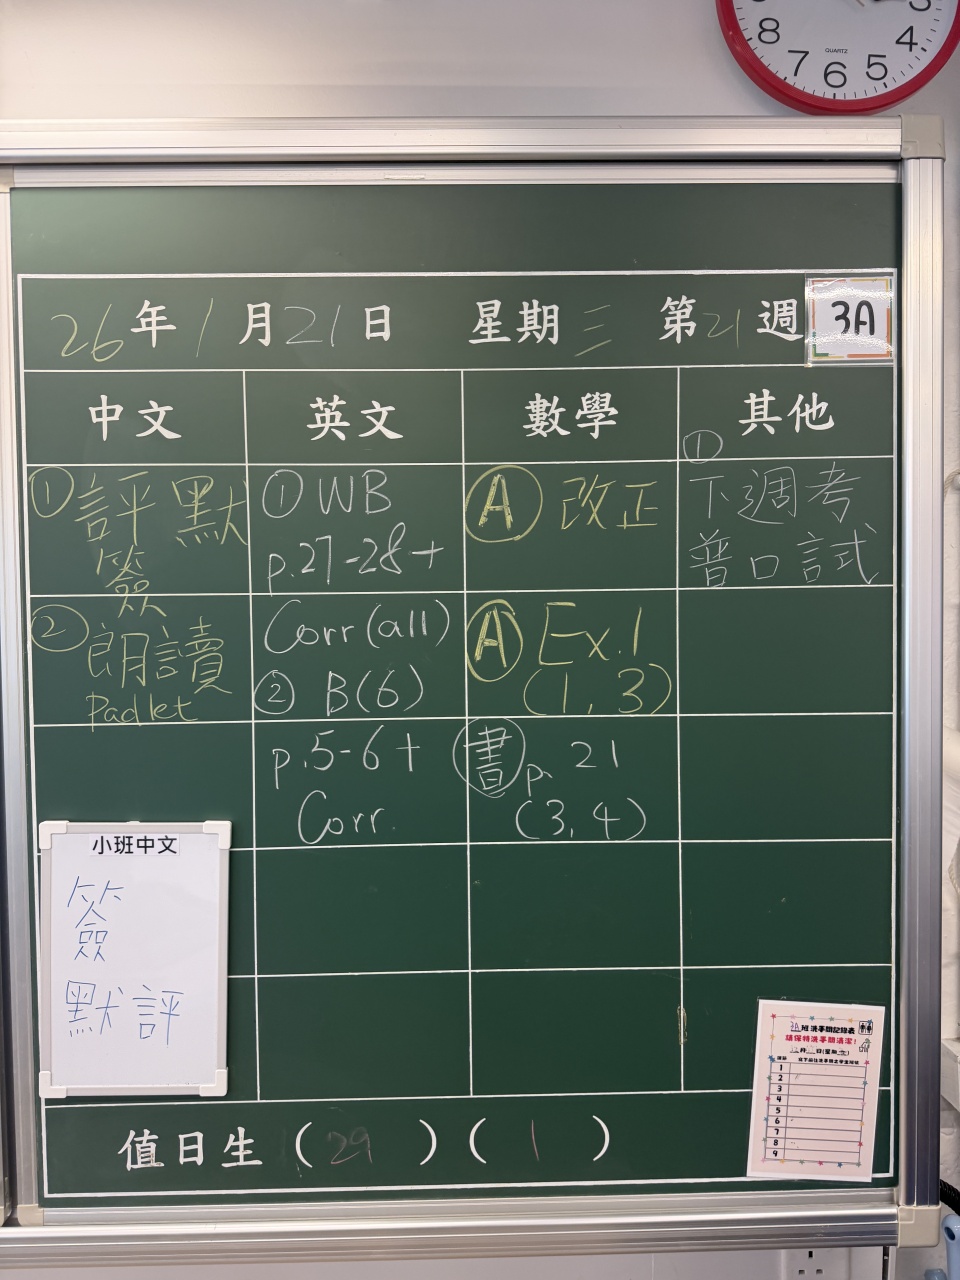 8 7 6 5 4
QUARTZ
26年1月21日 星期三 第21週 3A
中文 英文 數學 其他
① 評默
簽
② 朗讀
Padlet
① WB
p.27-28+
Corr(all)
② B(6)
p.5-6+
Corr.
Ⓐ 改正
Ⓐ Ex.1
(1, 3)
書 p. 21
(3, 4)
①
下週考
普口試
小班中文
簽
默評
3A班洗手間記錄表
請保持洗手間清潔!
1
2
3
4
5
6
7
8
9
值日生 (29) (1)